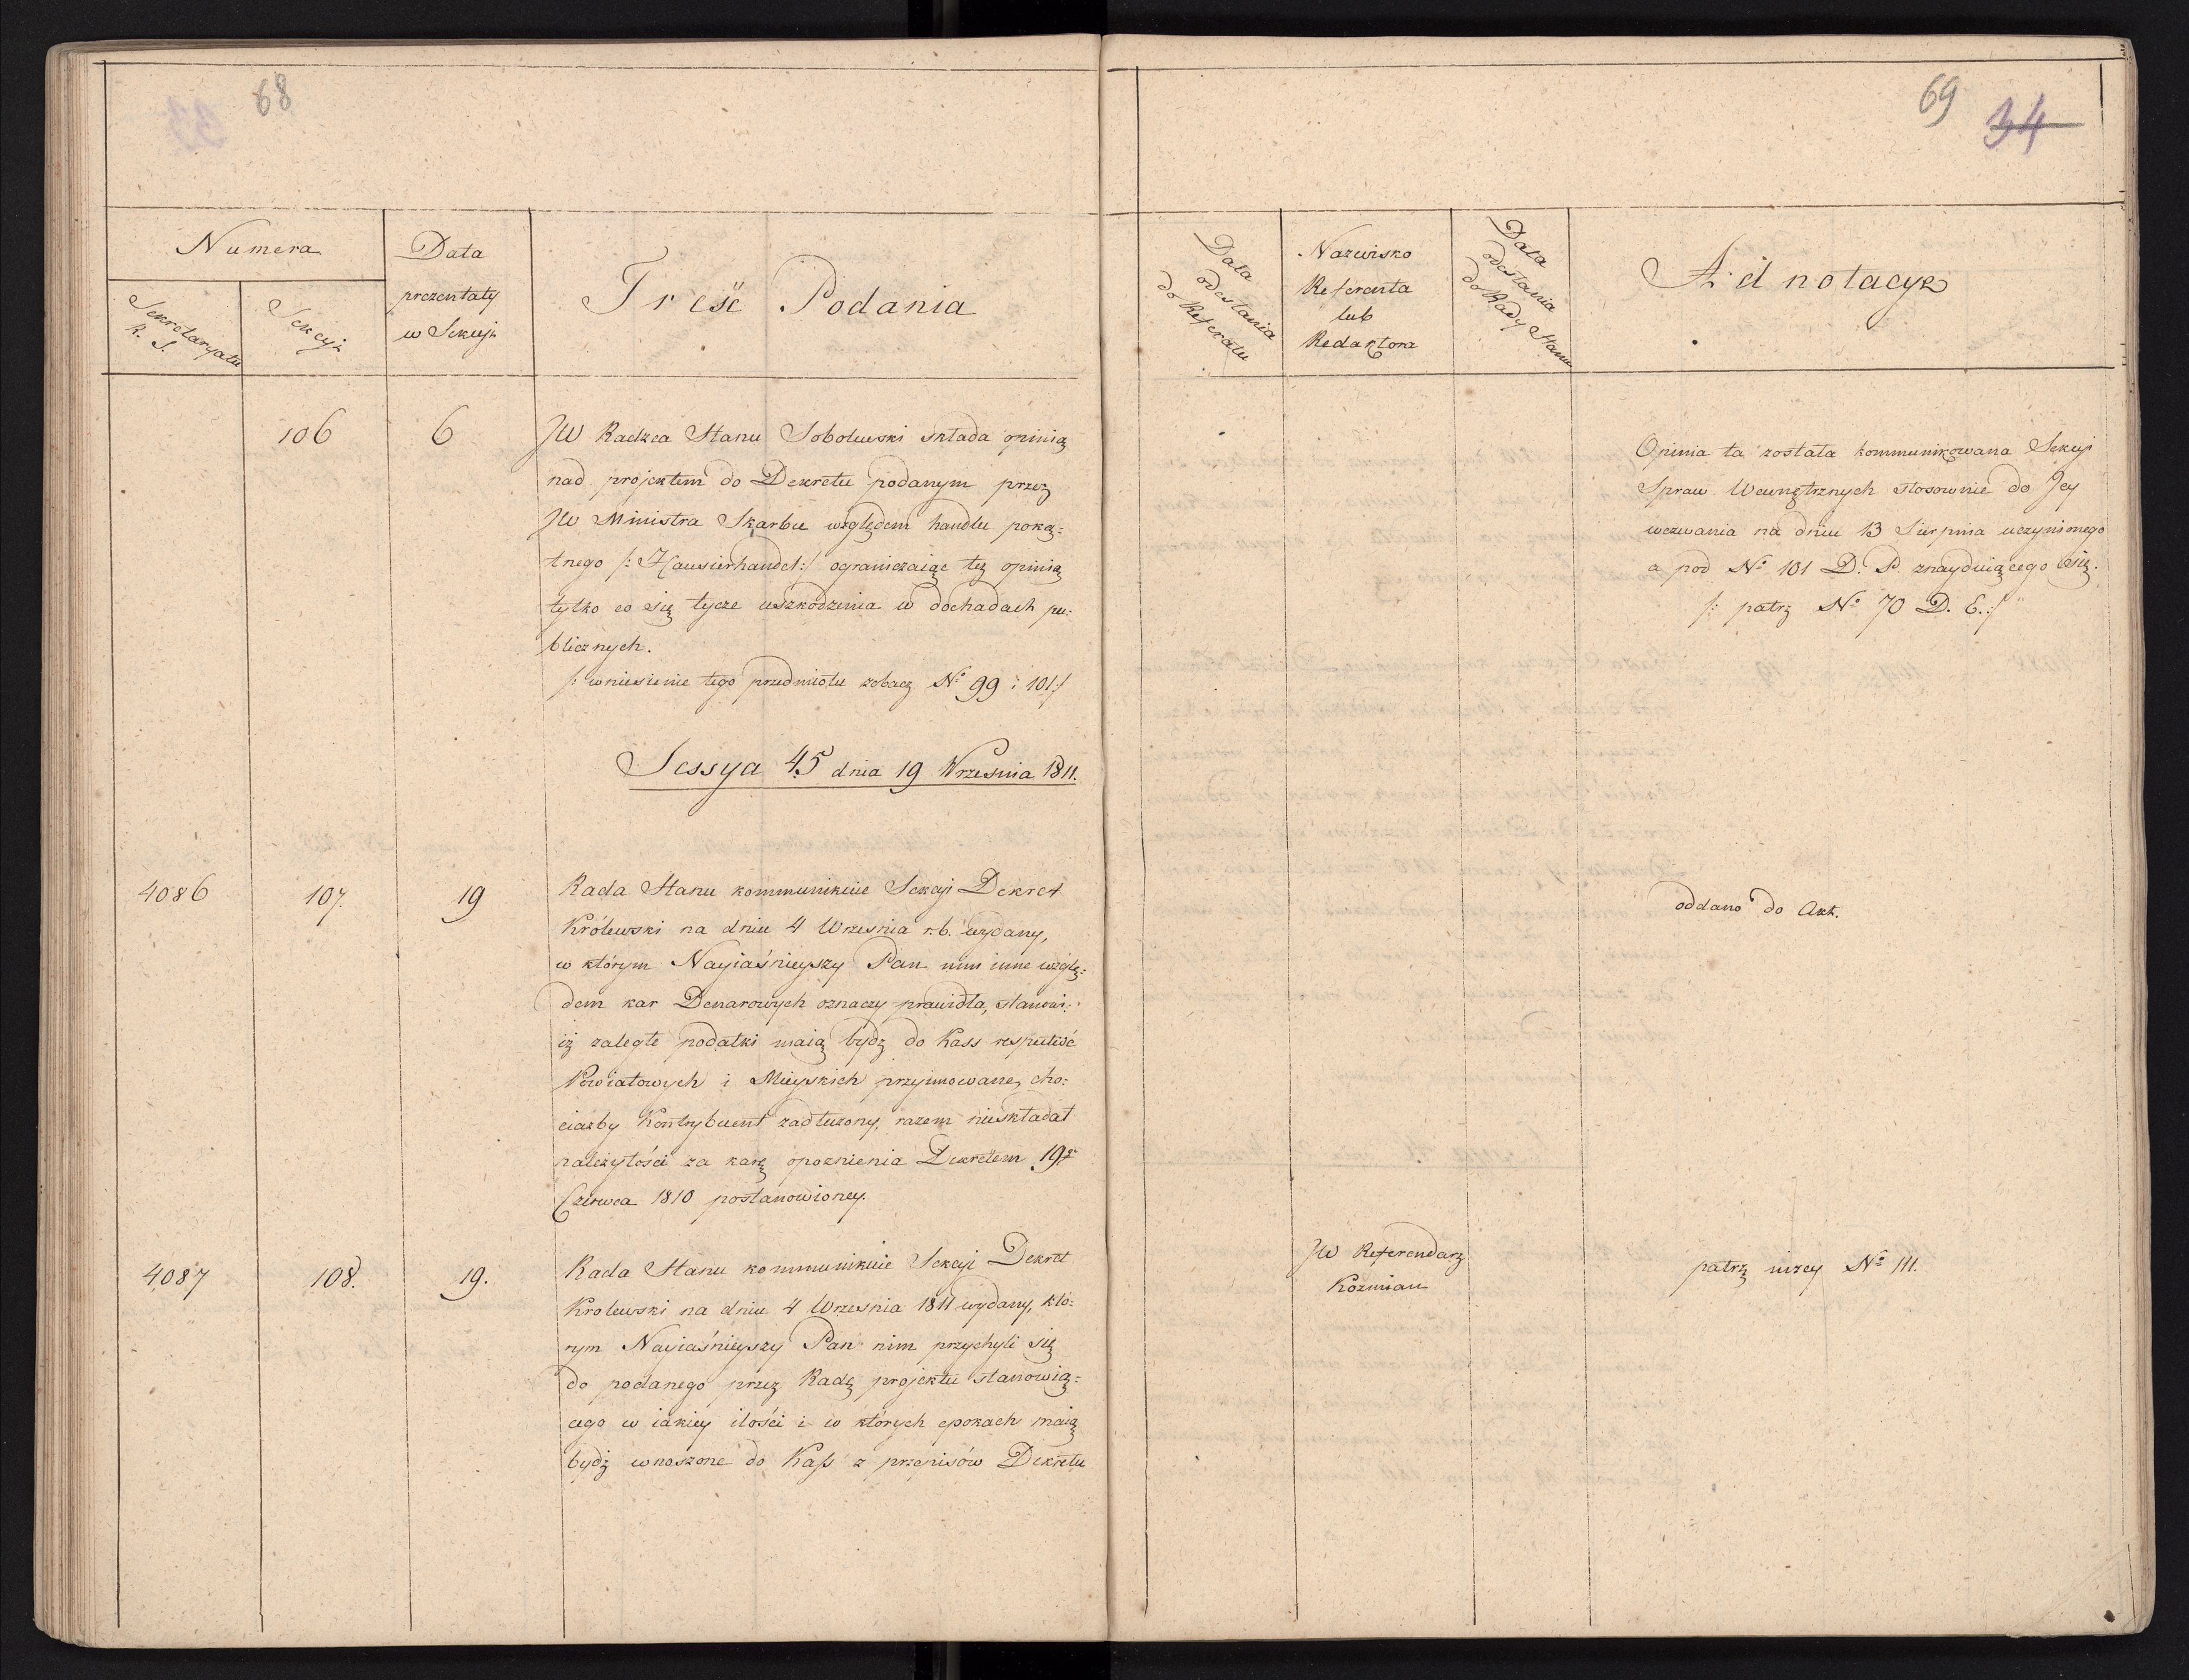 68
Numera
Sekretaryatu
R. S.
Sekcyi
Data
prezentaty
w Sekcyi
Treść Podania
106
6
JW Radzca Stanu Sobolewski składa opinią
nad projektem do Dekretu podanym przez
JW Ministra Skarbu względem handlu poką-
tnego /: Hausierhandel :/ ograniczaiąc tę opinią
tylko co się tycze uszkodzenia w dochadach pu-
blicznych.
/: wniesienie tego przedmiotu zobacz No 99 i 101 :/
Sessya 45 dnia 19 Września 1811.
4086
107.
19
Rada Stanu kommunikuie Sekcyi Dekret
Królewski na dniu 4 Września r.b. wydany,
w którym Nayiaśnieyszy Pan nim inne wzglę-
dem kar Denarowych oznaczy prawidła, stanowi:
iż zaległe podatki maią bydź do Kass respective
Powiatowych i Mieyskich przyimowane, cho-
ciażby Kontrybuent zadłużony, razem nieskładał
należytości za karę opoznienia Dekretem 19go
Czerwca 1810 postanowioney.
4087
108.
19.
Rada Stanu kommunikuie Sekcyi Dekret
Krolewski na dniu 4 Września 1811 wydany, któ-
rym Nayiaśnieyszy Pan nim przychyli się
do podanego przez Radę projektu stanowią-
cego w iakiey ilości i w których epokach maią
bydź wnoszone do Kass z przepisów Dekretu
69
34
Data
odesłania
do Referatu
Nazwisko
Referenta
lub
Redaktora
Data
odesłania
do Rady Stanu
Adnotacye
Opinia ta została kommunikowana Sekcyi
Spraw Wewnętrznych stosownie do Jey
wezwania na dniu 13 Sierpnia uczynionego
a pod No 101 D. P. znayduiącego się.
/: patrz No 70 D. E. :/
oddano do Akt.
JW Referendarz
Kozmian
patrz niżey No 111.